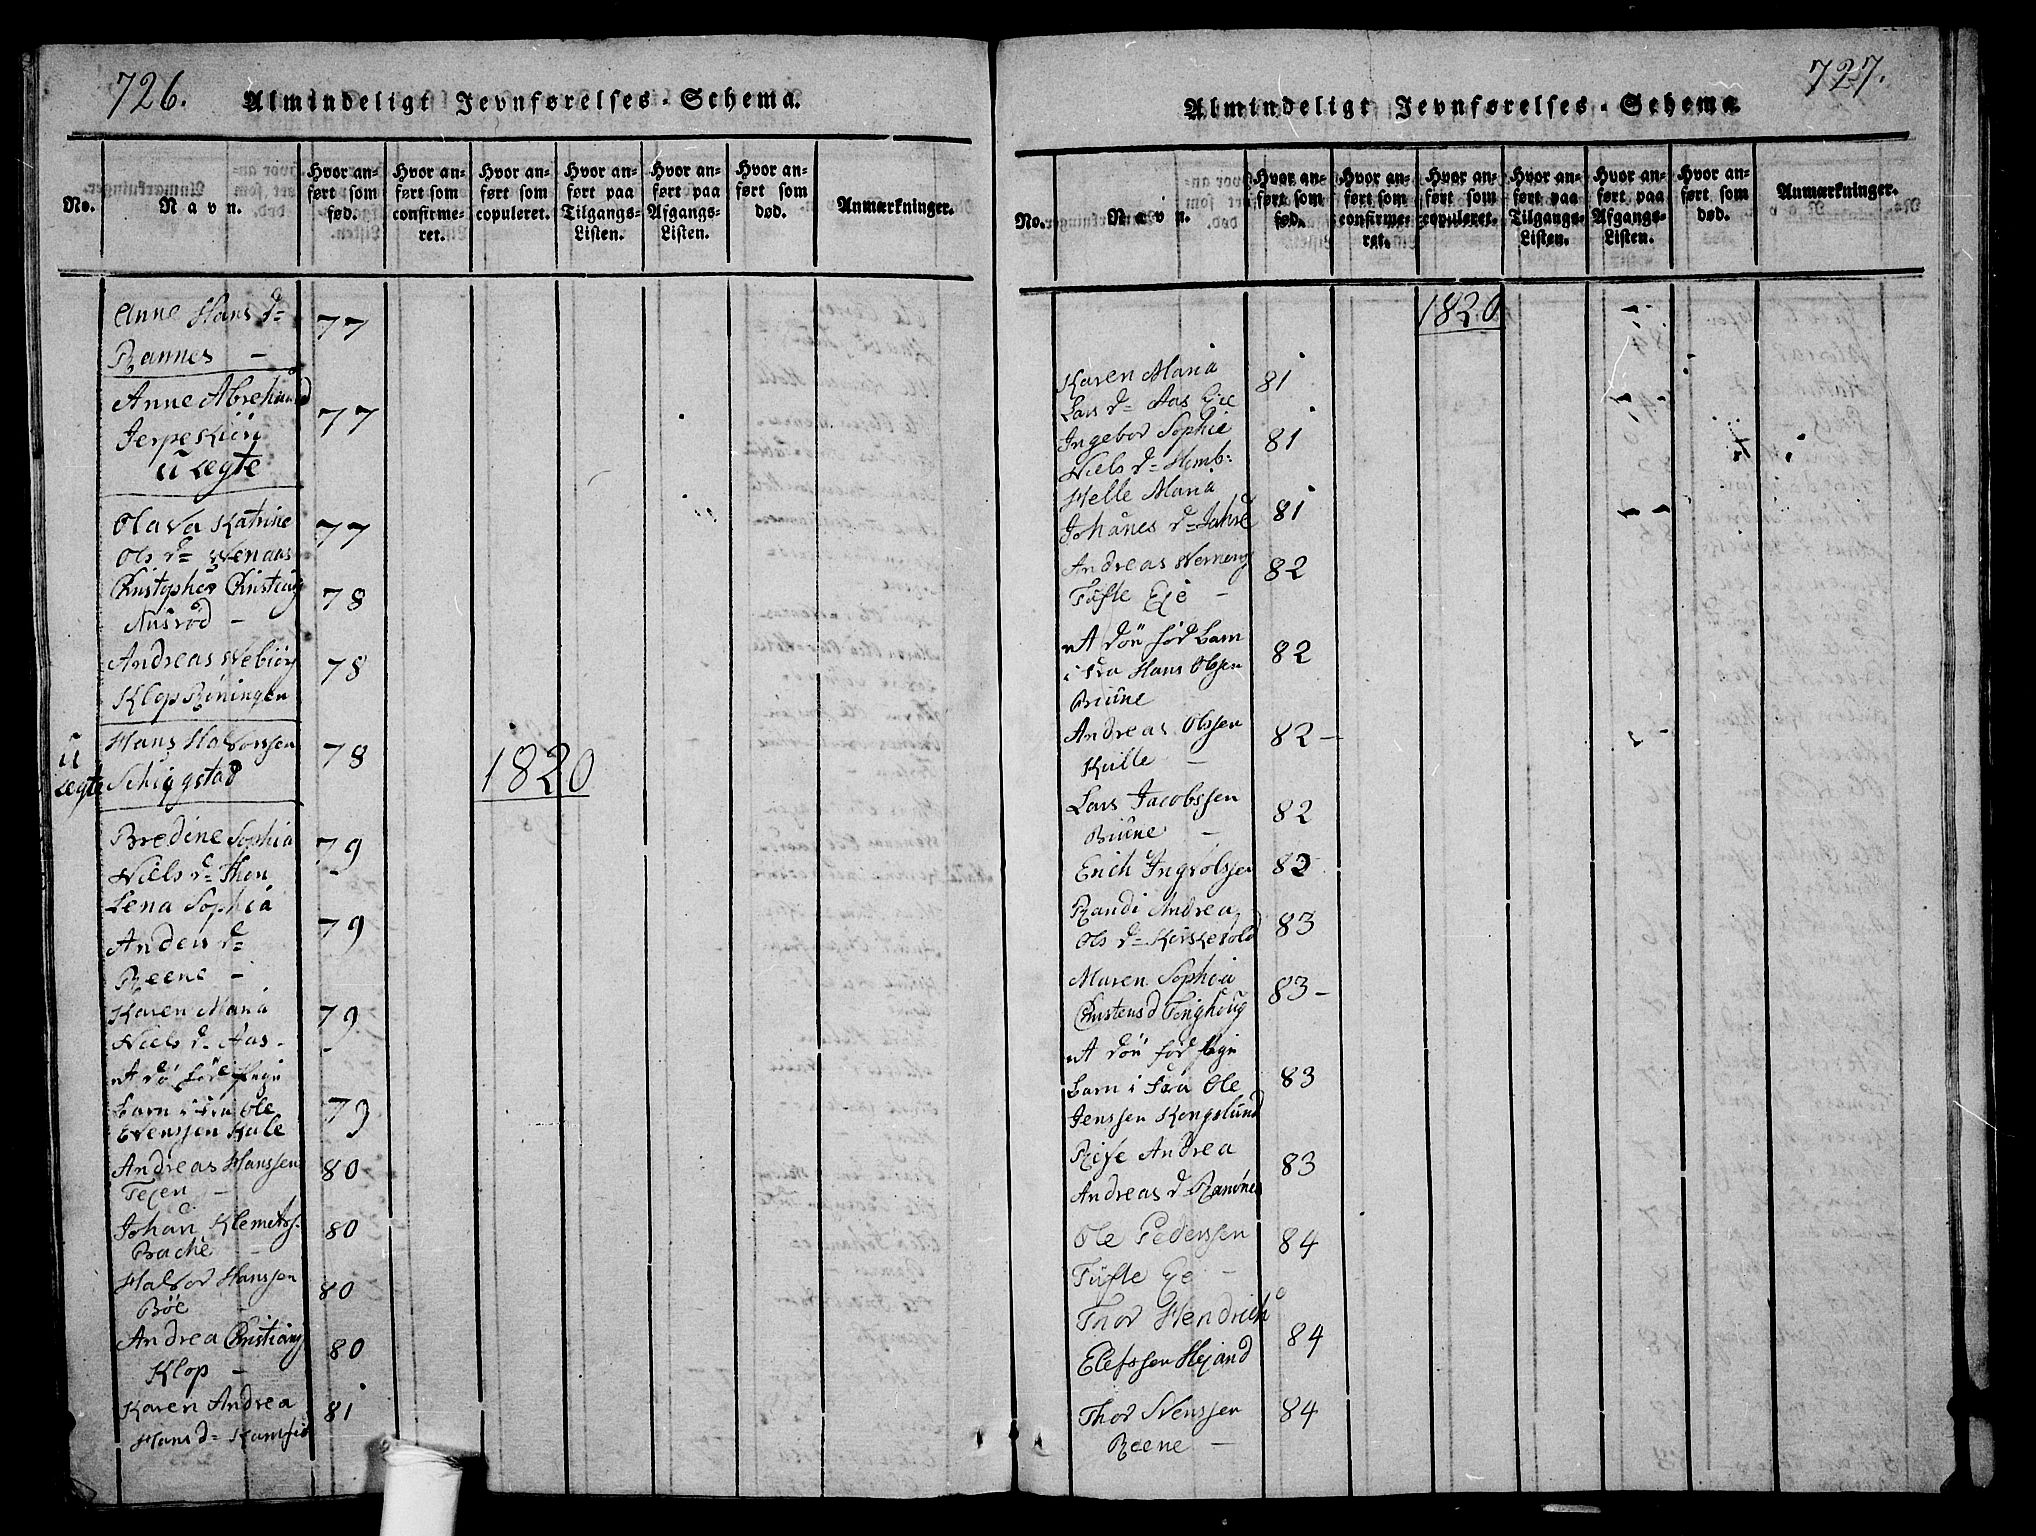 726.
Almindeligt Jevnførelses-Schema.
No.
Navn.
Hvor anført som fød.
Hvor anført som confirmeret.
Hvor anført som copuleret.
Hvor anført paa Tilgangs-Listen.
Hvor anført paa Afgangs-Listen.
Hvor anført som død.
Anmærkninger.
Anne Hans d=
Rannes - 77
Anne Abreham d
Jerpekiön 77
u ægte
Olava Katrine
Ols d= Wenaas 77
Christopher Christians
Nusröd - 78
Andreas Nebiörs
Klop Röningen 78
Hans Halvorssen
u ægte Schiggstad 78
1820
Bredine Sophia
Niels d= Thon 79
Lena Sophia
Anders d=
Reene - 79
Karen Maria
Niels d= Aas - 79
et dö föd pige
barn i fra Ole
Evenssen Kale 79
Andreas Hanssen
Tejen - 80
Johan Klemetss.
Bache - 80
Halvor Hanssen
Böe - 80
Andrea Christians
Klop - 80
Karen Andrea
Hans d= Kamfiö 81
727.
Almindeligt Jevnførelses-Schema
No.
Navn.
Hvor anført som fød.
Hvor anført som confirmeret.
Hvor anført som copuleret.
Hvor anført paa Tilgangs-Listen.
Hvor anført paa Afgangs-Listen.
Hvor anført som død.
Anmærkninger.
1820
Karen Maria
Lars d= Aas Eie 81
Ingebor Sophie
Niels d= Himb: 81
Helle Maria
Johanes d= Jahre 81
Andreas Werners
Tufte Eje - 82
et dön föd barn
i fra Hans Olssen
Bruune 82
Andreas Olssen
Kville - 82 -
Lars Jacobssen
Bruune - 82
Erich Ingvolssen 82
Randi Andrea
Ols d= Kirkevold 83
Maren Sophia
Christens d Tinghoug 83 -
et dön föd pige
barn i fra Ole
Jenssen Kongslund 83
Rife Andrea
Andreas d Ramnes 83
Ole Pederssen
Tufte Eje - 84
Thor Hendrich
Elefssen Hejand 84
Thor Svenssen
Reene - 84